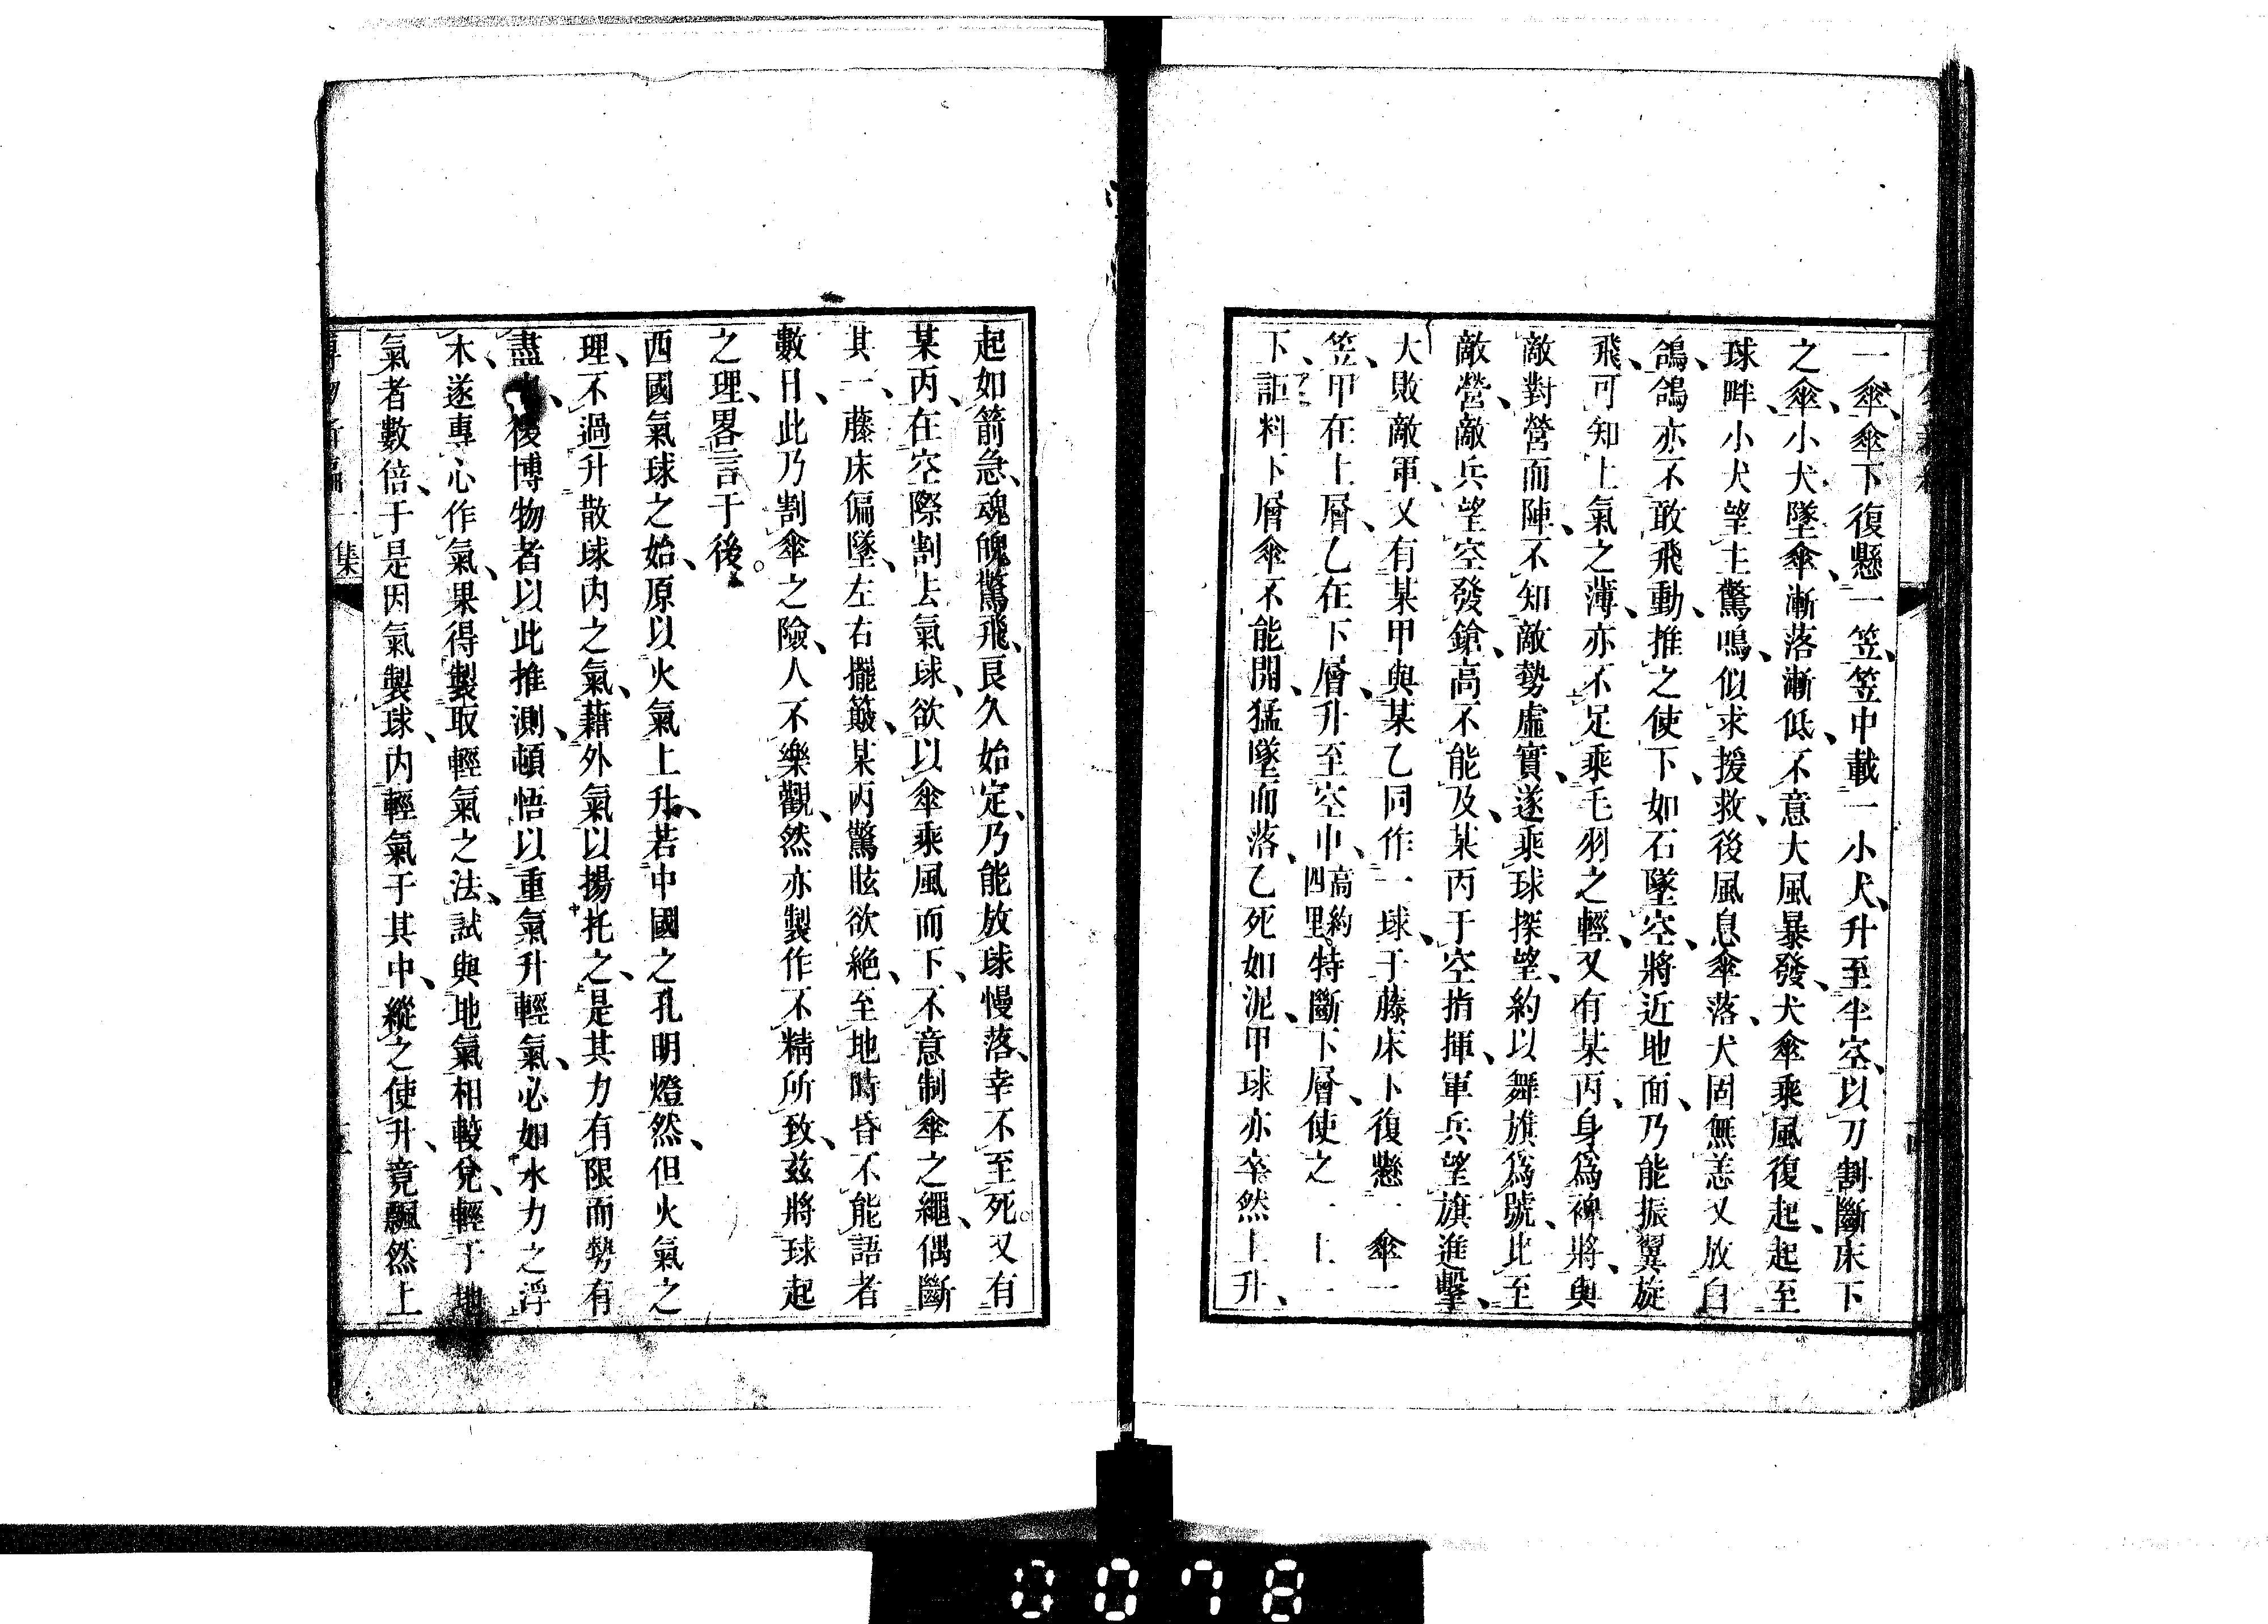 一傘、傘下復懸一笠、笠中載一小犬、升至半空、以刀割斷床下
之傘、小犬墜傘、漸落漸低、不意大風暴發、犬傘乘風復起、起至
球畔、小犬望主驚鳴、似求援救、後風息傘落、犬固無恙又放白
鴿、鴿亦不敢飛動、推之使下、如石墜空、將近地面、乃能振翼旋
飛、可知上氣之薄、亦不足乘毛羽之輕、又有某丙、身爲裨將、與
敵對營而陣、不知敵勢虛實、遂乘球探望、約以舞旗爲號、比至
敵營、敵兵望空發鎗、高不能及、某丙于空指揮、軍兵望旗進擊、
大敗敵軍、又有某甲與某乙同作一球、于藤床下復懸一傘一
笠、甲在上層、乙在下層、升至空中、高約四里。特斷下層、使之一上一
下、詎料下層傘不能開、猛墜而落、乙死如泥、甲球亦卒然上升、
起如箭急、魂魄驚飛、良久始定、乃能放球慢落、幸不至死。又有
某丙、在空際割去氣球、欲以傘乘風而下、不意制傘之繩、偶斷
其一、藤床偏墜、左右擺簸、某丙驚眩欲絶、至地時昏不能語者
數日、此乃割傘之險、人不樂觀、然亦製作不精所致、茲將球起
之理、畧言于後。
西國氣球之始、原以火氣上升、若中國之孔明燈然、但火氣之
理、不過升散球内之氣、藉外氣以揚托之、是其力有限而勢有
盡、後博物者以此推測、頓悟以重氣升輕氣、必如水力之浮
木、遂專心作氣、果得製取輕氣之法、試與地氣相較、兌輕于地
氣者數倍、于是因氣製球、内輕氣于其中、縱之使升、竟飄然上
集
0078